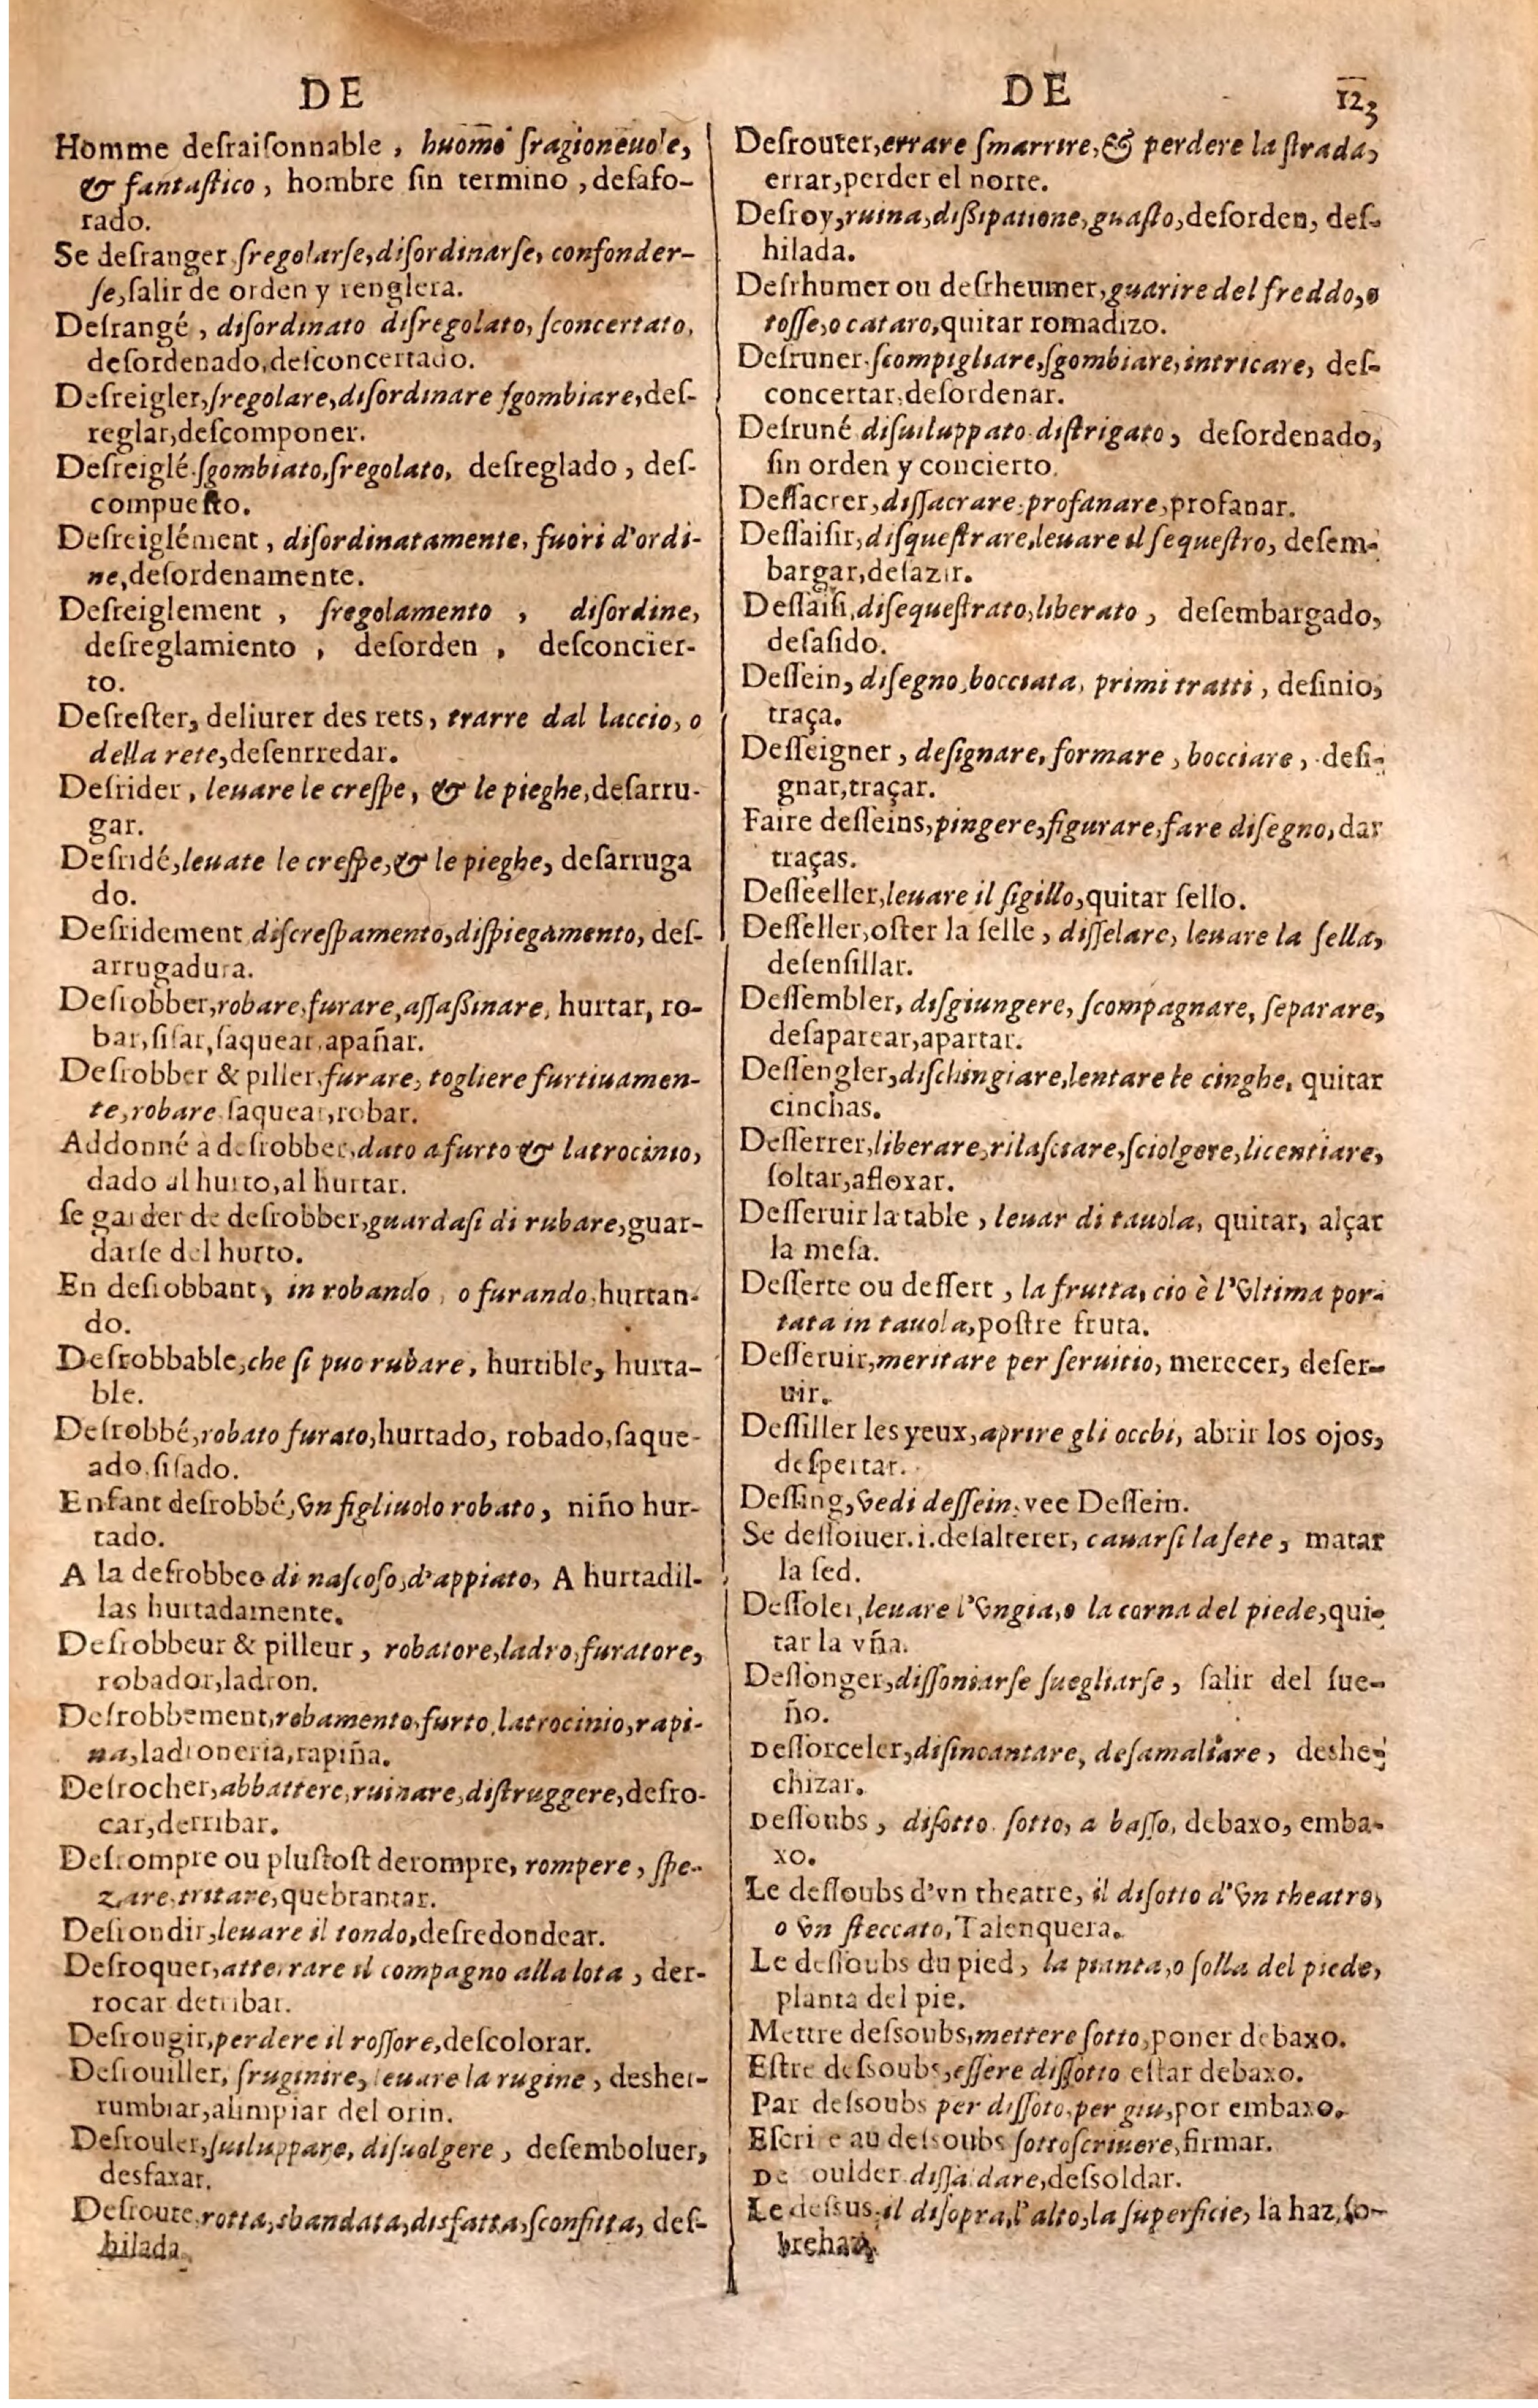 DE
Homme desraisonnable, huomo sragioneuole,
& fantastico, hombre sin termino, desafo-
rado.
Se desranger sregolarse, disordinarse, confonder-
se, salir de orden y renglera.
Desrangé, disordinato disregolato, sconcertato,
desordenado, desconcertado.
Desreigler, sregolare, disordinare sgombiare, des-
reglar, descomponer.
Desreiglé sgombiato, sregolato, desreglado, des-
compuesto.
Desreiglément, disordinatamente, fuori d'ordi-
ne, desordenamente.
Desreiglement, sregolamento, disordine,
desreglamiento, desorden, desconcier-
to.
Desrester, deliurer des rets, trarre dal laccio, o
della rete, desenrredar.
Desrider, leuare le crespe, & le pieghe, desarru-
gar.
Desridé, leuate le crespe, & le pieghe, desarruga
do.
Desridement discrespamento, dispiegamento, des-
arrugadura.
Desrobber, robare, furare, assaßinare, hurtar, ro-
bar, sisar, saquear, apañar.
Desrobber & piller, furare, togliere furtiuamen-
te, robare saquear, robar.
Addonné a desrobber, dato a furto & latrocinio,
dado al hurto, al hurtar.
se garder de desrobber, guardasi di rubare, guar-
darse del hurto.
En desrobbant, in robando, o furando, hurtan-
do.
Desrobbable, che si puo rubare, hurtible, hurta-
ble.
Desrobbé, robato furato, hurtado, robado, saque-
ado, sisado.
Enfant desrobbé, vn figliuolo robato, niño hur-
tado.
A la desrobbeo di nascoso, d'appiato, A hurtadil-
las hurtadamente.
Desrobbeur & pilleur, robatore, ladro, furatore,
robador, ladron.
Desrobbement, robamento, furto, latrocinio, rapi-
na, ladroneria, rapiña.
Desrocher, abbattere, ruinare, distruggere, desro-
car, derribar.
Desrompre ou plustost derompre, rompere, spe-
zare, tritare, quebrantar.
Desrondir, leuare il tondo, desredondear.
Desroquer, atterrare il compagno alla lota, der-
rocar derribar.
Desrougir, perdere il rossore, descolorar.
Desrouiller, sruginire, leuare la rugine, desher-
rumbiar, alimpiar del orin.
Desrouler, suiluppare, disuolgere, desemboluer,
desfaxar.
Desroute, rotta, sbandata, disfatta, sconfitta, des-
hilada.
DE 123
Desrouter, errare smarrire, & perdere la strada,
errar, perder el norte.
Desroy, ruina, dißipatione, guasto, desorden, des-
hilada.
Desrhumer ou desrheumer, guarire del freddo, o
tosse, o cataro, quitar romadizo.
Desruner scompigliare, sgombiare, intricare, des-
concertar, desordenar.
Desruné disuiluppato distrigato, desordenado,
sin orden y concierto.
Dessacrer, dissacrare, profanare, profanar.
Dessaisir, disquestrare, leuare il sequestro, desem-
bargar, desazir.
Dessaisi, disequestrato, liberato, desembargado,
desasido.
Dessein, disegno, bocciata, primi tratti, desinio,
traça.
Desseigner, designare, formare, bocciare, desi-
gnar, traçar.
Faire desseins, pingere, figurare, fare disegno, dar
traças.
Desseeller, leuare il sigillo, quitar sello.
Desseller, oster la selle, disselare, leuare la sella,
desensillar.
Dessembler, disgiungere, scompagnare, separare,
desaparear, apartar.
Dessengler, dischingiare, lentare le cinghe, quitar
cinchas.
Desserrer, liberare, rilasciare, sciolgere, licentiare,
soltar, afloxar.
Desseruir la table, leuar di tauola, quitar, alçar
la mesa.
Desserte ou dessert, la frutta, cio è l'vltima por-
tata in tauola, postre fruta.
Desseruir, meritare per seruitio, merecer, deser-
uir.
Dessiller les yeux, aprire gli occhi, abrir los ojos,
despertar.
Dessing, vedi dessein, vee Dessein.
Se dessoiuer. i. desalterer, cauarsi la sete, matar
la sed.
Dessoler, leuare l'vngia, o la corna del piede, qui-
tar la vña.
Dessonger, dissoniarse suegliarse, salir del sue-
ño.
Dessorceler, disincantare, desamaliare, deshe-
chizar.
Dessoubs, disotto sotto, a basso, debaxo, emba-
xo.
Le dessoubs d'vn theatre, il disotto d'vn theatro,
o vn steccato, Talenquera.
Le dessoubs du pied, la pianta, o solla del piede,
planta del pie.
Mettre dessoubs, mettere sotto, poner debaxo.
Estre dessoubs, essere dissotto estar debaxo.
Par dessoubs per dissoto, per giu, por embaxo.
Escrire au dessoubs sottoscriuere, firmar.
De oulder dissa dare, dessoldar.
Le dessus, il disopra, l'alto, la superficie, la haz, so-
brehaz.